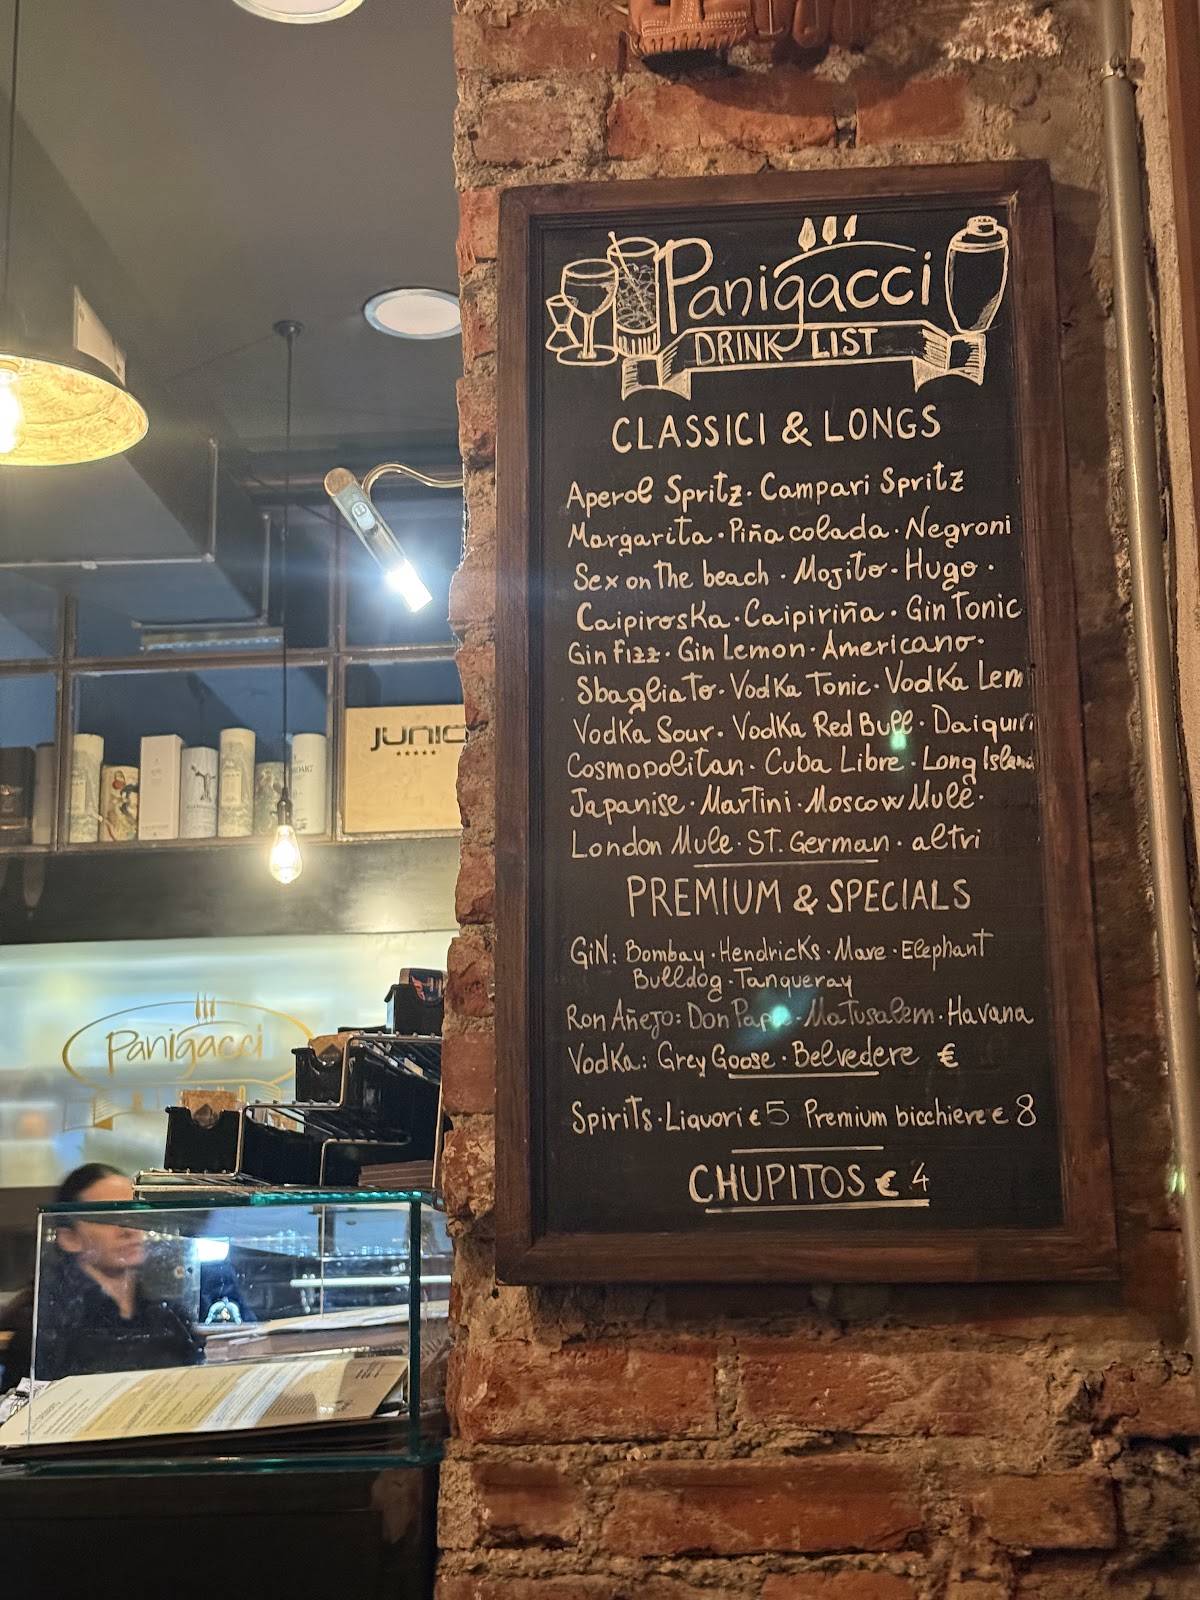 Panigacci
DRINK LIST
CLASSICI & LONGS
Aperol Spritz · Campari Spritz
Margarita · Piña colada · Negroni
Sex on The beach · Mojito · Hugo ·
Caipiroska · Caipiriña · Gin Tonic
Gin Fizz · Gin Lemon · Americano ·
Sbagliato · Vodka Tonic · Vodka Lem
Vodka Sour · Vodka Red Bull · Daiquiri
Cosmopolitan · Cuba Libre · Long Island
Japanise · Martini · Moscow Mule ·
London Mule · ST. German · altri
PREMIUM & SPECIALS
GiN: Bombay · Hendricks · Mare · Elephant
Bulldog · Tanqueray
Ron Añejo: Don Papa · Matusalem · Havana
Vodka: Grey Goose · Belvedere €
Spirits · Liquori € 5 Premium bicchiere € 8
CHUPITOS € 4
JUNIO
Panigacci